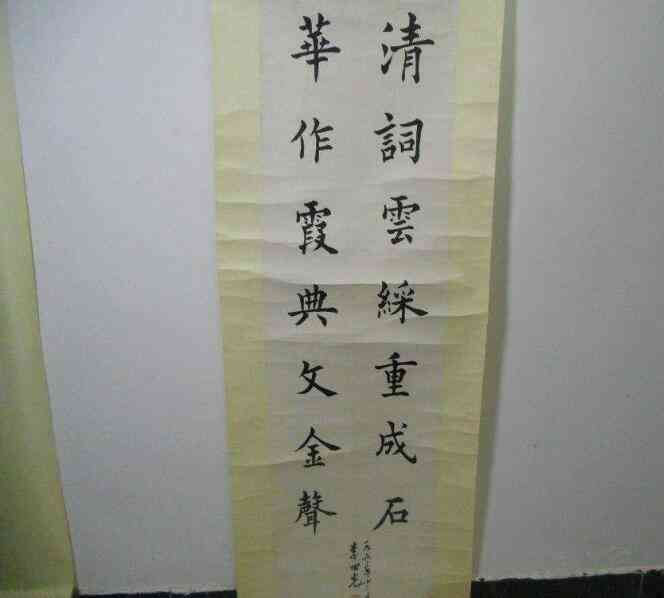 清詞雲綵重成石
華作霞典文金聲